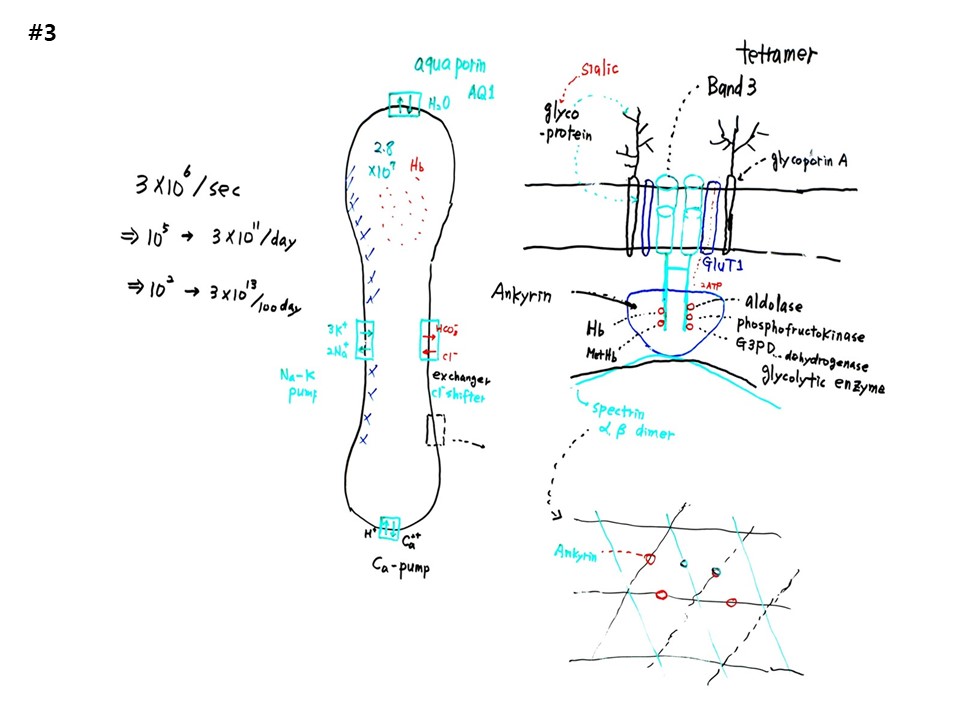 #3
3×10⁶/sec
⇒ 10⁵ → 3×10¹¹/day
⇒ 10² → 3×10¹³/100day
aquaporin
AQ1
H₂O
2.8
×10⁷
Hb
3K⁺
2Na⁺
Na-K
pump
HCO₃⁻
Cl⁻
exchanger
cl⁻shifter
H⁺
Ca⁺⁺
Ca-pump
tetramer
sialic
Band 3
glyco
-protein
glycoporin A
GluT1
2ATP
Ankyrin
aldolase
Hb
phosphofructokinase
MetHb
G3PD
dehydrogenase
glycolytic enzyme
spectrin
α β dimer
Ankyrin